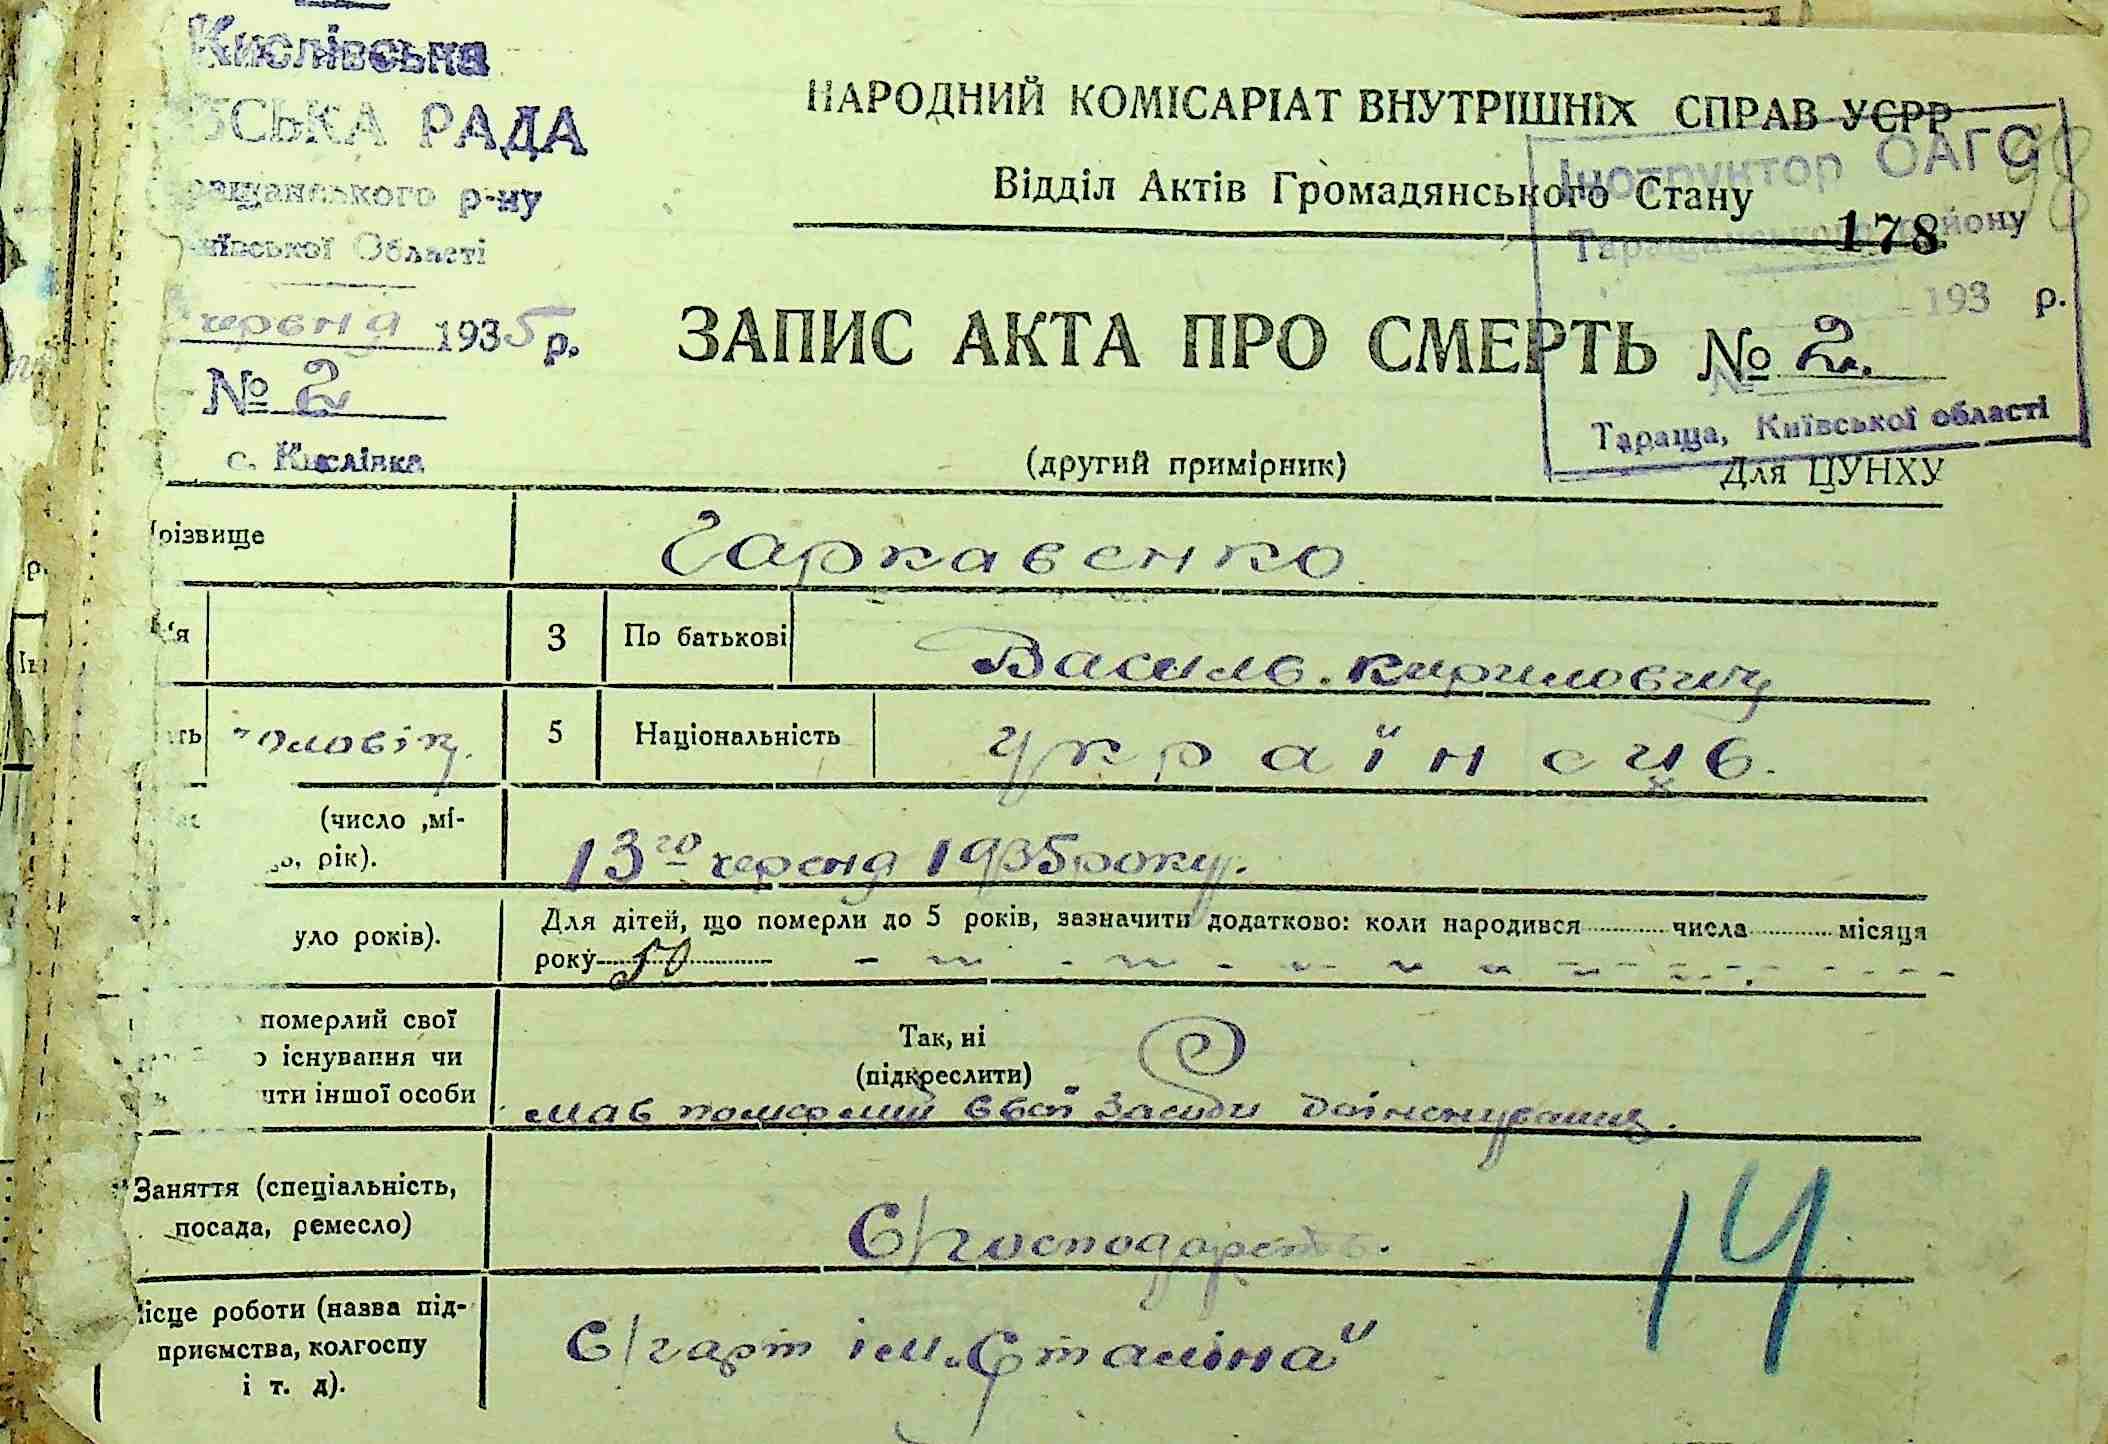 Кислівська
СЬКА РАДА
ращанського р-ну
ївської Області
червня 1935 р.
№ 2
с. Кислівка
НАРОДНИЙ КОМІСАРІАТ ВНУТРІШНІХ СПРАВ УСРР
Відділ Актів Громадянського Стану
178
98
Інструктор ОАГС
Таращанського району
193 р.
№
Тараща, Київської області
ЗАПИС АКТА ПРО СМЕРТЬ № 2.
(другий примірник)
Для ЦУНХУ
різвище
Гаркавенко
'я
3
По батькові
Василь. Кирилович
ть
чоловік.
5
Національність
українець.
(число ,мі-
рік).
13го червня 1935 року.
уло років).
Для дітей, що померли до 5 років, зазначити додатково: коли народився числа місяця
року 50
померлий свої
існування чи
ти іншої особи
Так, ні
(підкреслити)
мав померлий свої засоби
Заняття (спеціальність,
посада, ремесло)
С/господарств.
ісце роботи (назва під-
приємства, колгоспу
і т. д).
С/г арт ім. „Сталіна"
14